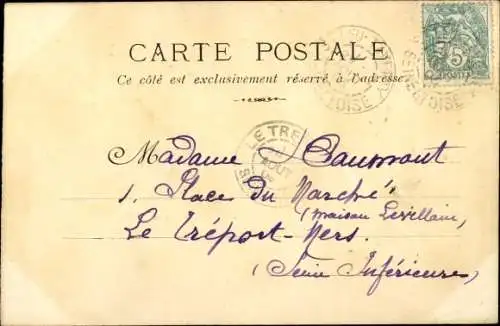 CARTE POSTALE
Ce côté est exclusivement réservé à l'adresse
5
POSTES
SEINE ET OISE
OISE
LE TRE
AOUT
Madame Caumont
1. Place du Marché
(maison Levillain,
Le Tréport-Mers.
(Seine Inférieure)